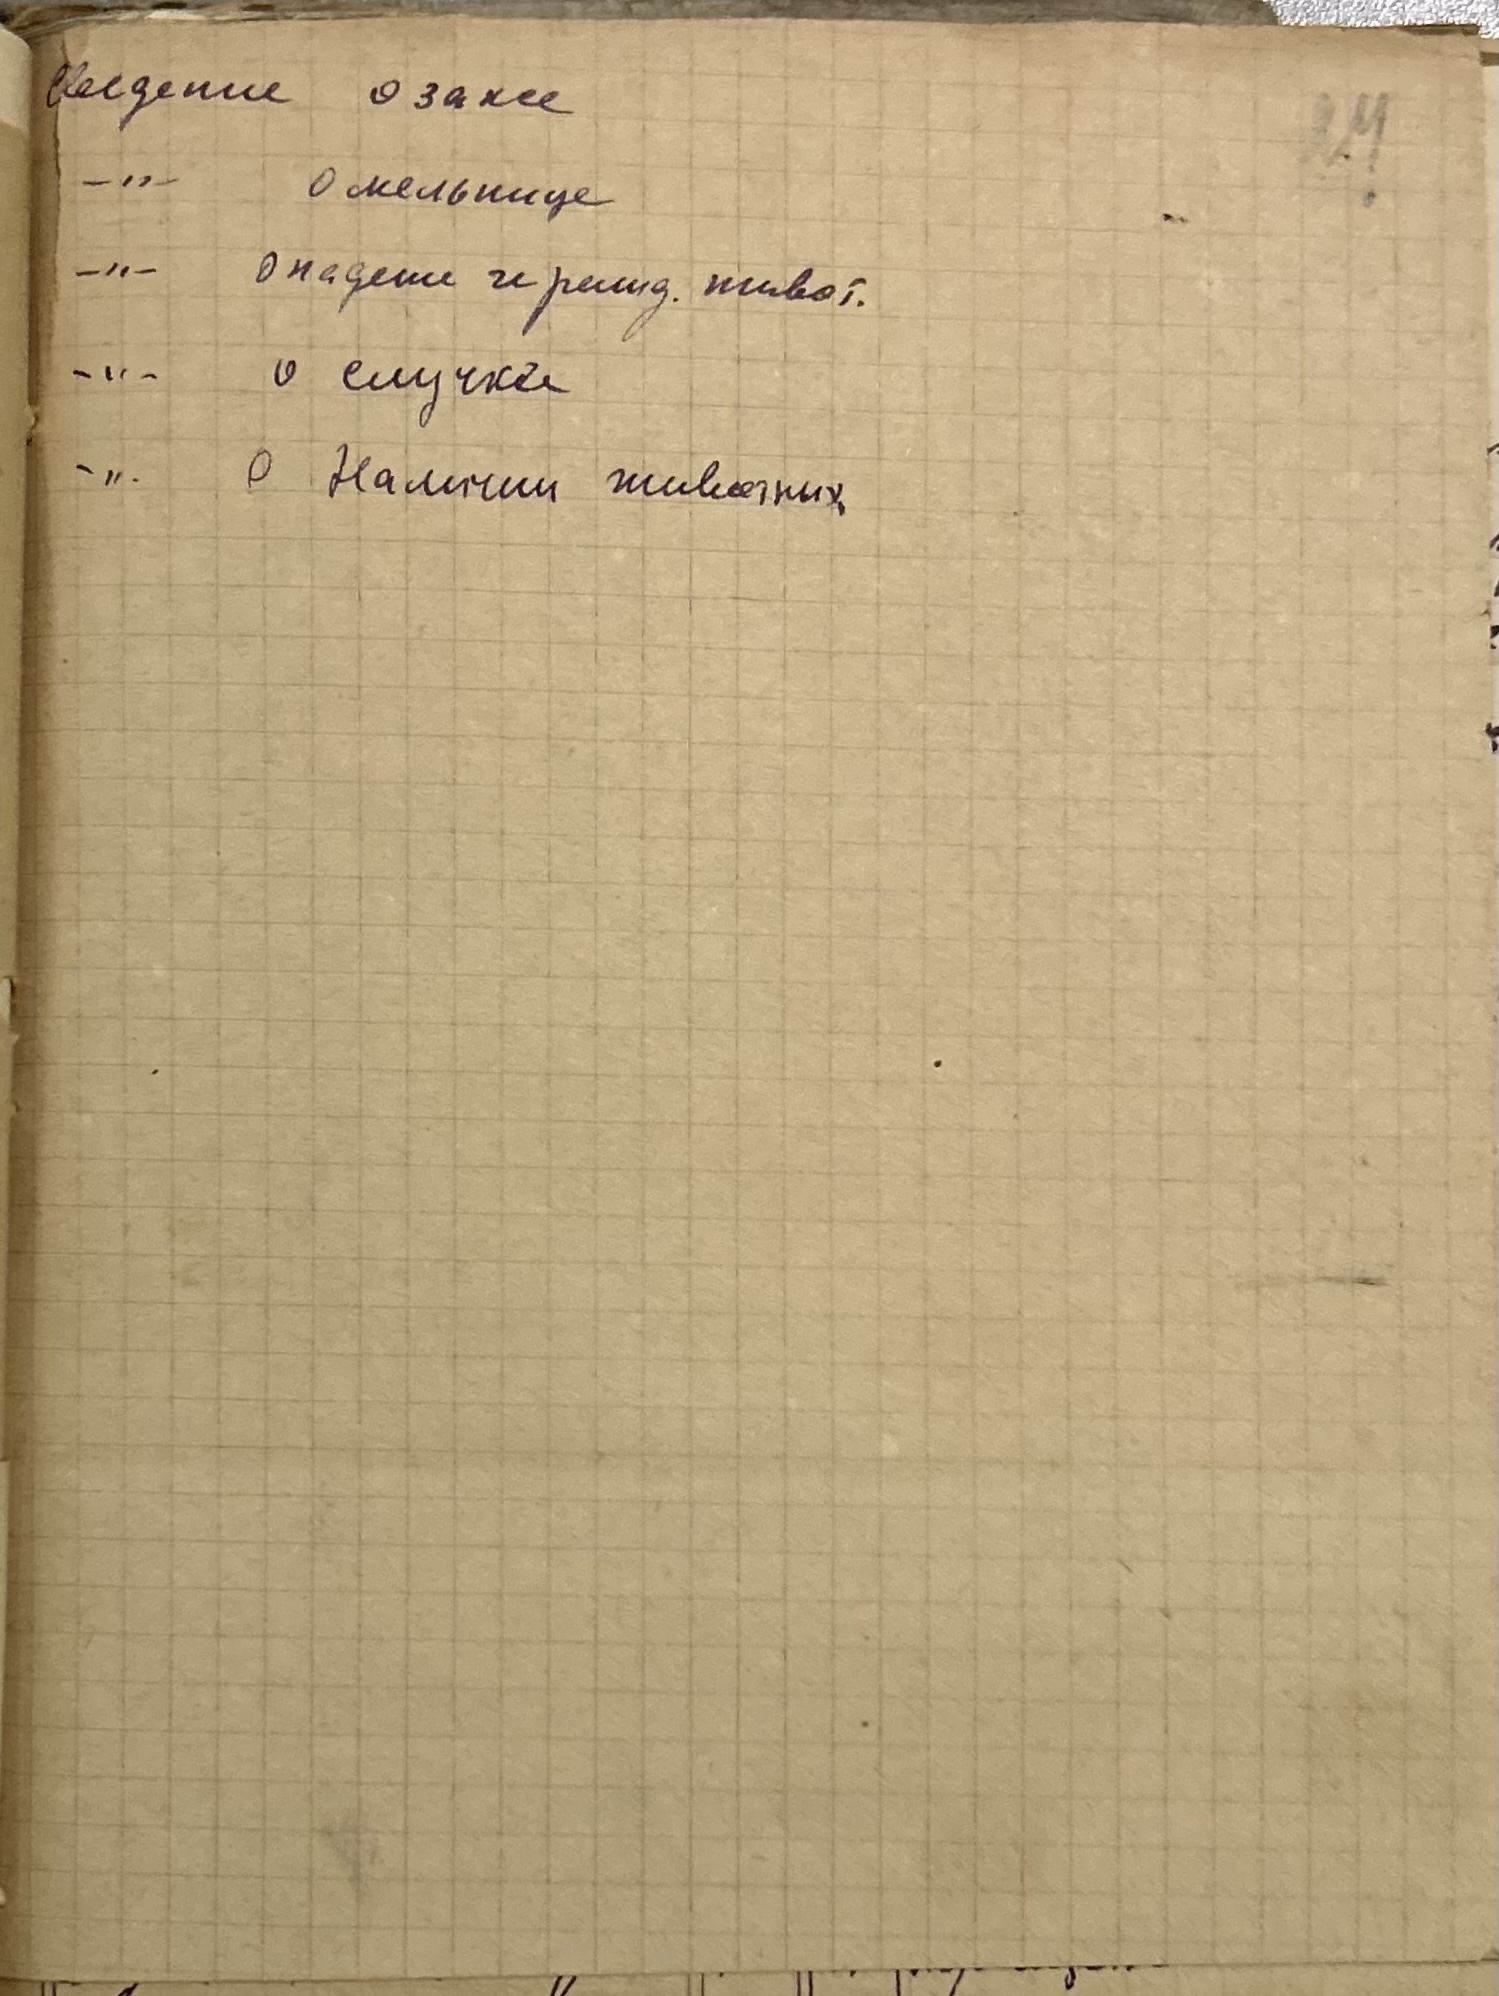 Сведение о заке
24
-"- О мельнице
-"- О падеже и рожд. живот.
-"- о случке
-"- О Наличии животных